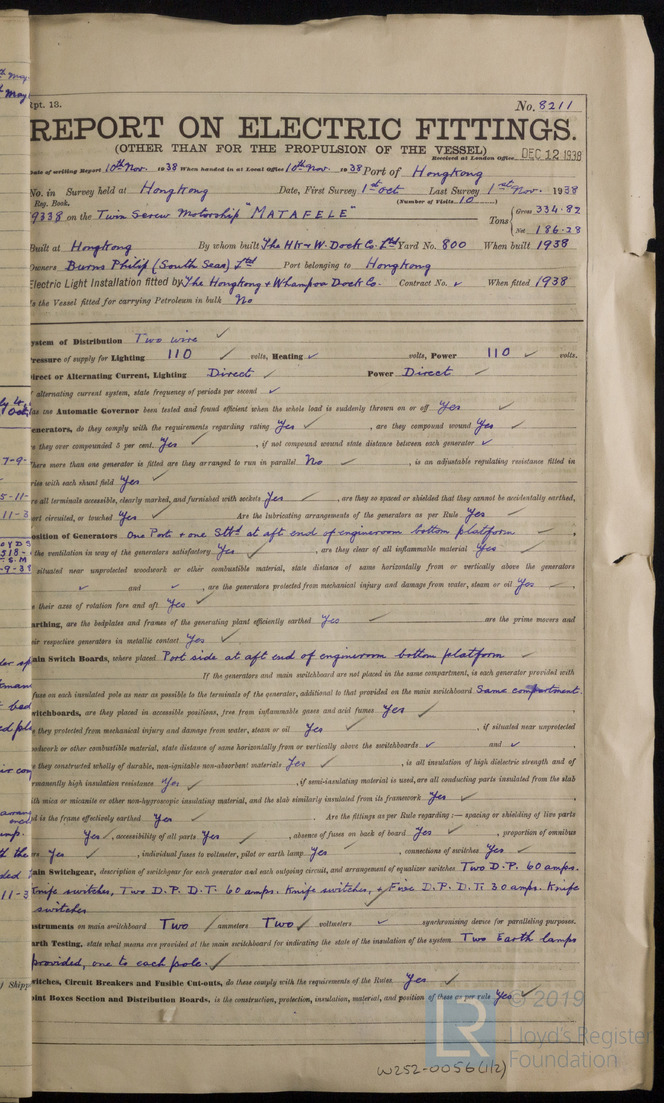 Rpt. 13. No. 8211
REPORT ON ELECTRIC FITTINGS.
(OTHER THAN FOR THE PROPULSION OF THE VESSEL)
Received at London Office DEC 12 1938
Date of writing Report 10th Nov. 1938 When handed in at Local Office 10th Nov. 1938 Port of Hongkong
No. in Survey held at Hongkong Date, First Survey 1st Oct Last Survey 1st Nov. 1938
Reg. Book. (Number of Visits 10)
9338 on the Twin Screw Motorship "MATAFELE" Tons Gross 334.82
Net 186.28
Built at Hongkong By whom built The HK & W. Dock Co. Ltd Yard No. 800 When built 1938
Owners Burns Philip (South Seas) Ltd Port belonging to Hongkong
Electric Light Installation fitted by The Hongkong & Whampoa Dock Co. Contract No. ✓ When fitted 1938
Is the Vessel fitted for carrying Petroleum in bulk No
ystem of Distribution Two wire ✓
ressure of supply for Lighting 110 ✓ volts, Heating ✓ volts, Power 110 ✓ volts.
irect or Alternating Current, Lighting Direct ✓ Power Direct ✓
f alternating current system, state frequency of periods per second ✓
as the Automatic Governor been tested and found efficient when the whole load is suddenly thrown on or off Yes ✓
enerators, do they comply with the requirements regarding rating Yes ✓, are they compound wound Yes ✓
e they over compounded 5 per cent. Yes ✓, if not compound wound state distance between each generator ✓
here more than one generator is fitted are they arranged to run in parallel No ✓, is an adjustable regulating resistance fitted in
ries with each shunt field Yes ✓
re all terminals accessible, clearly marked, and furnished with sockets Yes ✓, are they so spaced or shielded that they cannot be accidentally earthed,
ort circuited, or touched Yes ✓ Are the lubricating arrangements of the generators as per Rule Yes ✓
osition of Generators One Port & one Stbd at aft end of engineroom bottom platform ✓
the ventilation in way of the generators satisfactory Yes ✓, are they clear of all inflammable material Yes ✓
situated near unprotected woodwork or other combustible material, state distance of same horizontally from or vertically above the generators
✓ and ✓, are the generators protected from mechanical injury and damage from water, steam or oil Yes ✓,
e their axes of rotation fore and aft Yes ✓
arthing, are the bedplates and frames of the generating plant efficiently earthed Yes ✓ are the prime movers and
eir respective generators in metallic contact Yes ✓
ain Switch Boards, where placed Port side at aft end of engineroom bottom platform ✓
If the generators and main switchboard are not placed in the same compartment, is each generator provided with
fuse on each insulated pole as near as possible to the terminals of the generator, additional to that provided on the main switchboard Same compartment.
witchboards, are they placed in accessible positions, free from inflammable gases and acid fumes Yes ✓
e they protected from mechanical injury and damage from water, steam or oil Yes ✓, if situated near unprotected
oodwork or other combustible material, state distance of same horizontally from or vertically above the switchboards ✓ and ✓,
e they constructed wholly of durable, non-ignitable non-absorbent materials Yes ✓, is all insulation of high dielectric strength and of
rmanently high insulation resistance Yes ✓, if semi-insulating material is used, are all conducting parts insulated from the slab
ith mica or micanite or other non-hygroscopic insulating material, and the slab similarly insulated from its framework Yes ✓,
d is the frame effectively earthed Yes ✓ Are the fittings as per Rule regarding :— spacing or shielding of live parts
Yes ✓, accessibility of all parts Yes ✓, absence of fuses on back of board Yes ✓, proportion of omnibus
ars Yes ✓, individual fuses to voltmeter, pilot or earth lamp Yes ✓, connections of switches Yes ✓
ain Switchgear, description of switchgear for each generator and each outgoing circuit, and arrangement of equalizer switches Two D.P. 60 amps.
Knife switches, Two D.P. D.T. 60 amps. Knife switches, & Five D.P. D.T. 30 amps. Knife
switches
nstruments on main switchboard Two ✓ ammeters Two ✓ voltmeters ✓ synchronising device for paralleling purposes.
arth Testing, state what means are provided at the main switchboard for indicating the state of the insulation of the system Two Earth lamps
provided, one to each pole. ✓
witches, Circuit Breakers and Fusible Cut-outs, do these comply with the requirements of the Rules Yes ✓
oint Boxes Section and Distribution Boards, is the construction, protection, insulation, material, and position of these as per rule Yes ✓
© 2019
LR
Lloyd's Register
Foundation
W252-0056(1/2)